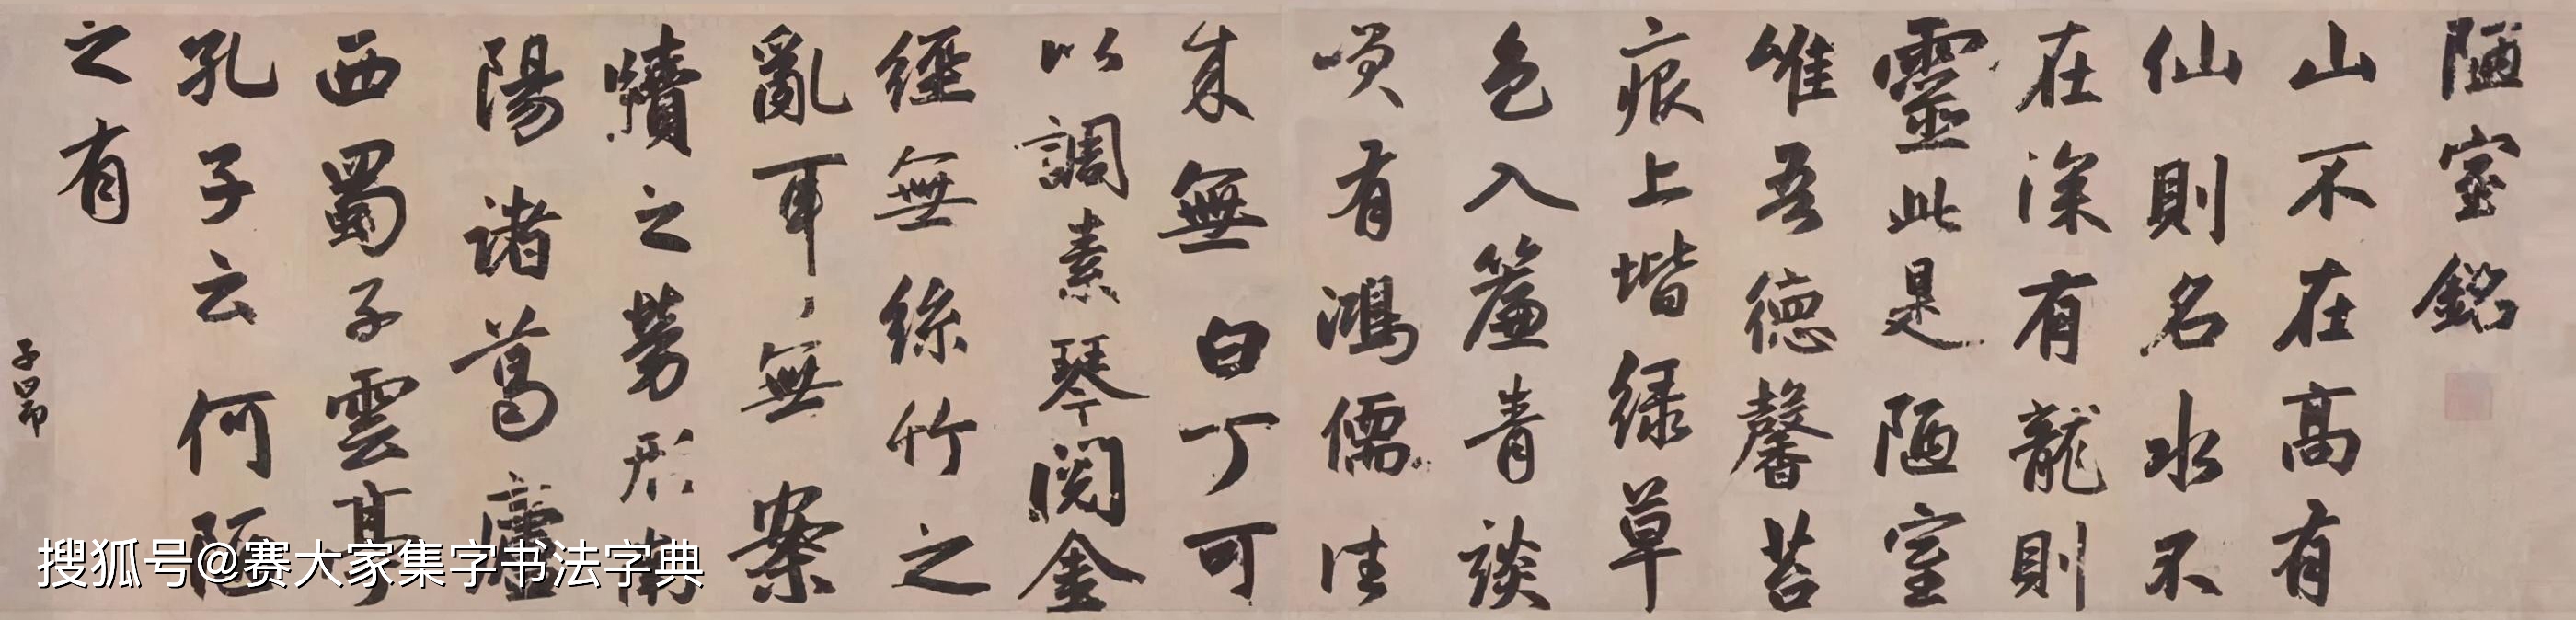 陋室銘
山不在高有
仙則名水不
在深有龍則
靈此是陋室
唯吾德馨苔
痕上堦緑草
色入簾青談
咲有鴻儒往
来無白丁可
以調素琴閱金
經無絲竹之
亂耳無案
牘之勞形南
陽諸葛廬
西蜀子雲亭
孔子云何陋
之有
子昂
搜狐号@赛大家集字书法字典